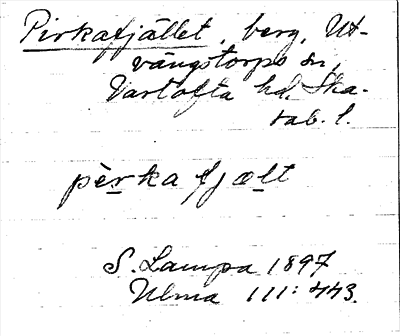 Pirkafjället, berg, Ut-
vängstorps sn,
Vartofta hd, Ska-
rab. l.
pèrka fjælt
S. Lampa 1897
Ulma 111: 443.